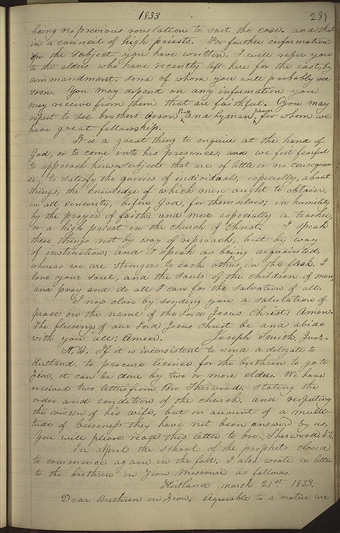 1833 287
being no previous revelation to suit the case and that
in a council of high priests. For further information
on the subject you have written, I will refer you
to the elders who have recently left here for the east, by
commandment, some of whom you will probably see
soon. You may depend on any information you
may receive from them that are faithful. You may
expect to see brothers Orson and Lyman, for whom we
have great fellowship.
It is a great thing to enquire at the hand of
God, or to come into his presence, and we feel fearful
to approach him on subjects that are of little or no consequen
ce, to satisfy the queries of individuals, especially, about
things, the knowledge of which men ought to obtain,
in all sincerity, before God, for themselves, in humility
by the prayer of faith; and more especially a teacher,
or a high priest in the church of Christ. I speak
these things not by way of reproach, but by way
of instruction; and I speak as being acquainted,
whereas we are strangers to each other, in the flesh. I
love your soul, and the souls of the children of men,
and pray and do all I can for the salvation of all.
I now close by sending you a salutation of
peace in the name of the Lord Jesus Christ; Amen.
The blessings of our Lord Jesus Christ be and abide
with you all; Amen. Joseph Smith, Jun.
N.B. If it is inconsistent to send a delegate to
Kirtland to procure licence for the brethren to go to
Zion, it can be done by two or more elders. We have
received two letters from bro. Sherwood, stating the
order and condition of the church, and respecting
the vision of his wife, but on account of a multi
tude of business they have not been answered by us.
You will please read this letter to bro. Sherwood. J.S.
In April the school of the prophets closed
to commence again in the fall. I also wrote a letter
to the brethren in Zion, Missouri as follows.
Kirtland, March 21st 1833.
Dear Brethren in Zion, agreeable to a notice we